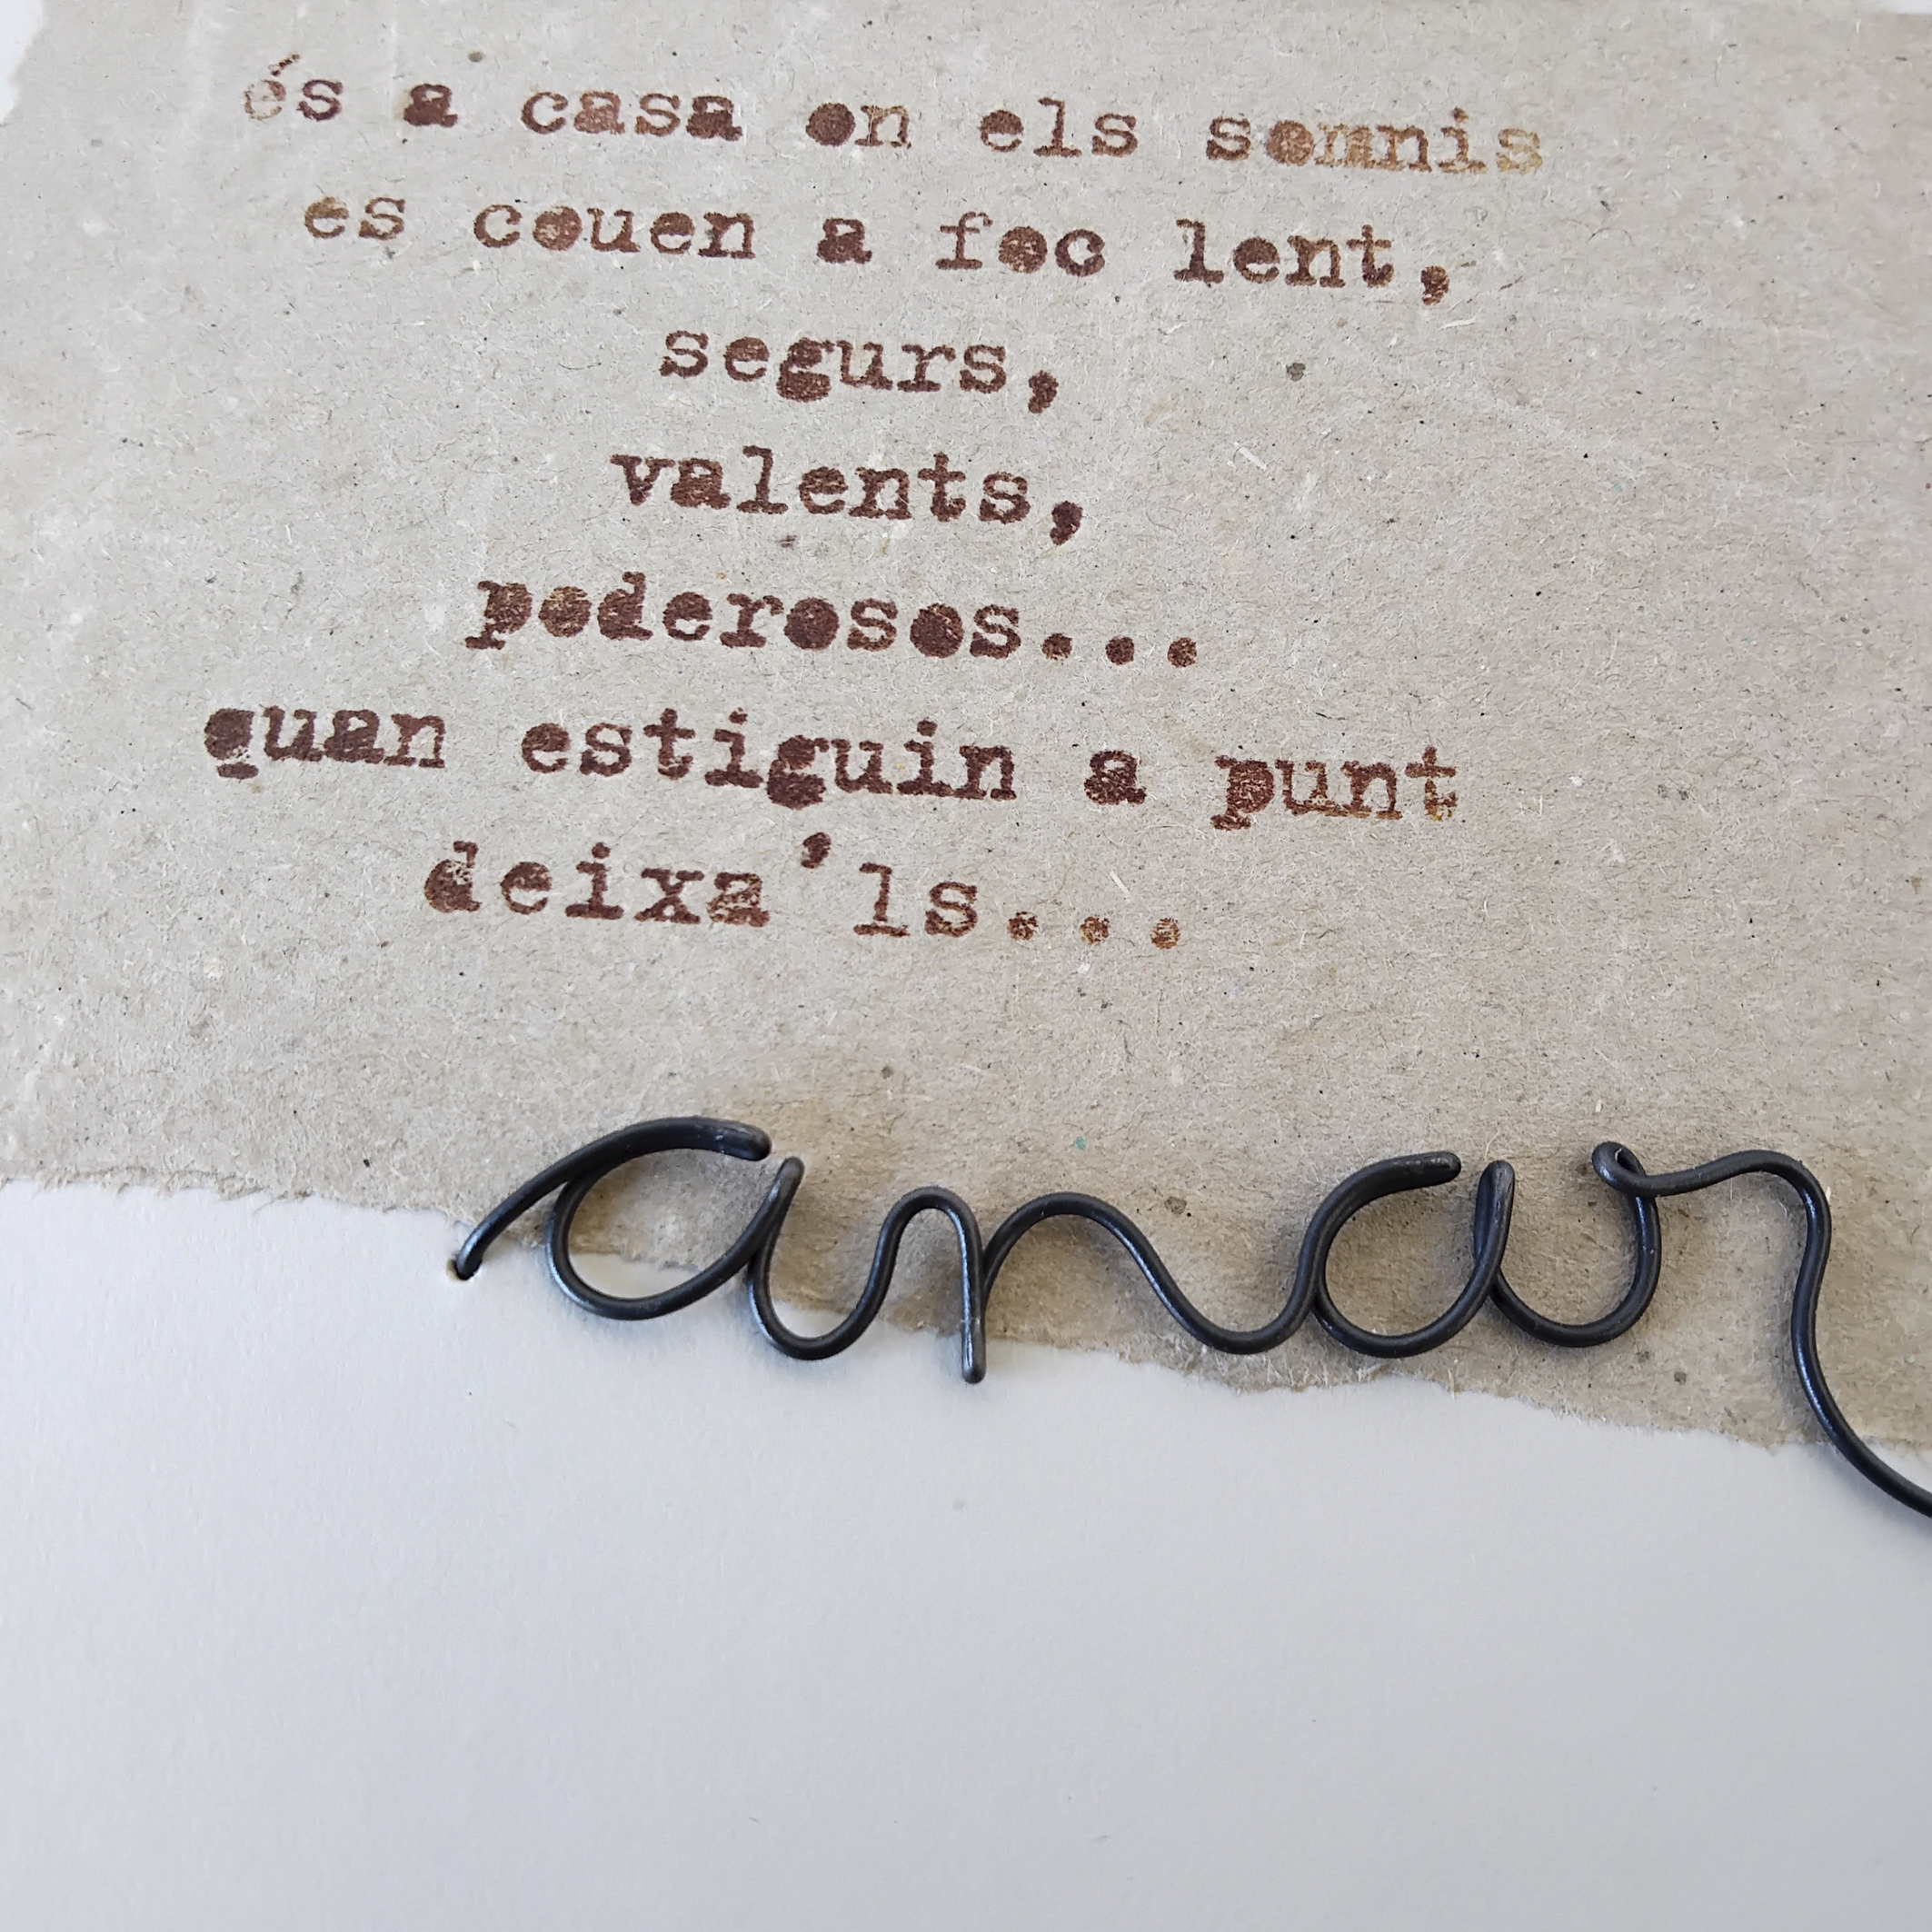 és a casa on els somnis
es couen a foc lent,
segurs,
valents,
poderosos...
quan estiguin a punt
deixa'ls...
anar